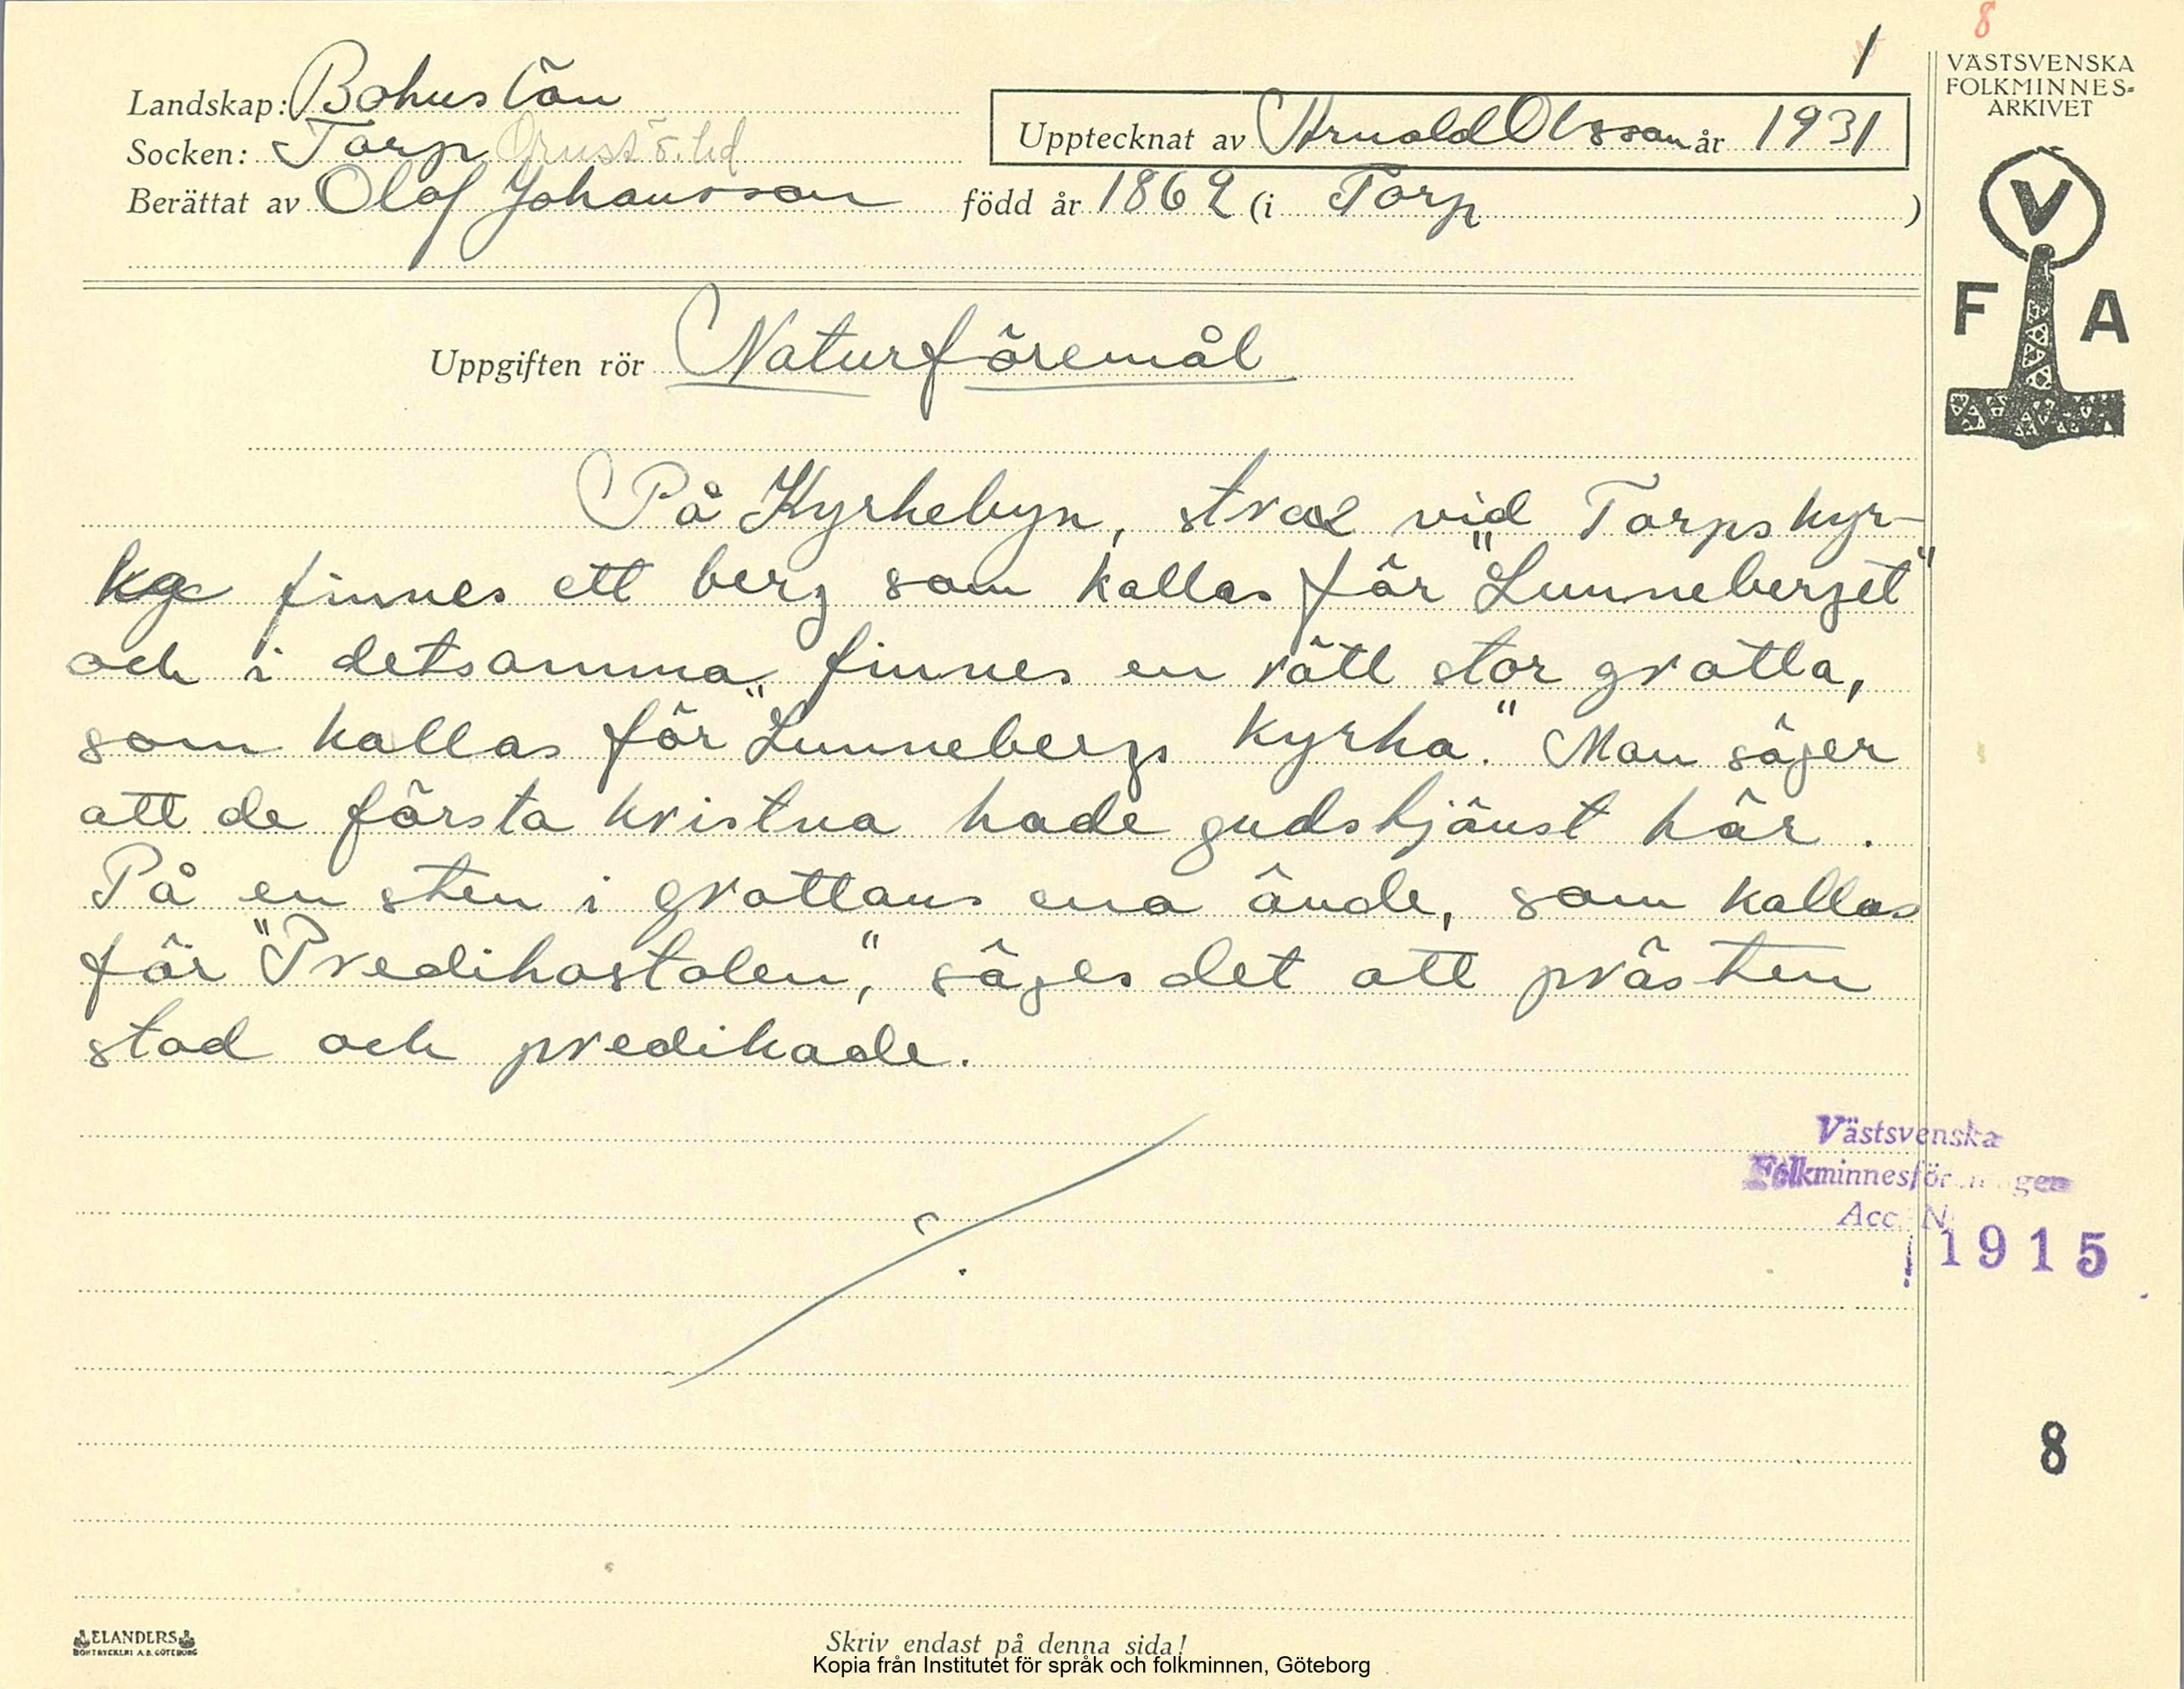 8
1
VÄSTSVENSKA
FOLKMINNES-
ARKIVET
Landskap: Bohuslän
Upptecknat av Arnold Olsson år 1931
Socken: Torp Orust ö. hd
Berättat av Olof Johansson född år 1862 (i Torp )
V
F A
Uppgiften rör Naturföremål
På Kyrkebyn, strax vid Torps kyr-
ka finnes ett berg som kallas för "Lunneberget"
och i detsamma finnes en rätt stor grotta,
som kallas för "Lunnebergs kyrka". Man säger
att de första kristna hade gudstjänst här.
På en sten i grottans ena ände, som kallas
för "Predikostolen", säges det att prästen
stod och predikade.
Västsvenska
Folkminnesför n gen
Acc. N
1915
8
ELANDERS
BOKTRYCKERI A.B. GÖTEBORG
Skriv endast på denna sida!
Kopia från Institutet för språk och folkminnen, Göteborg